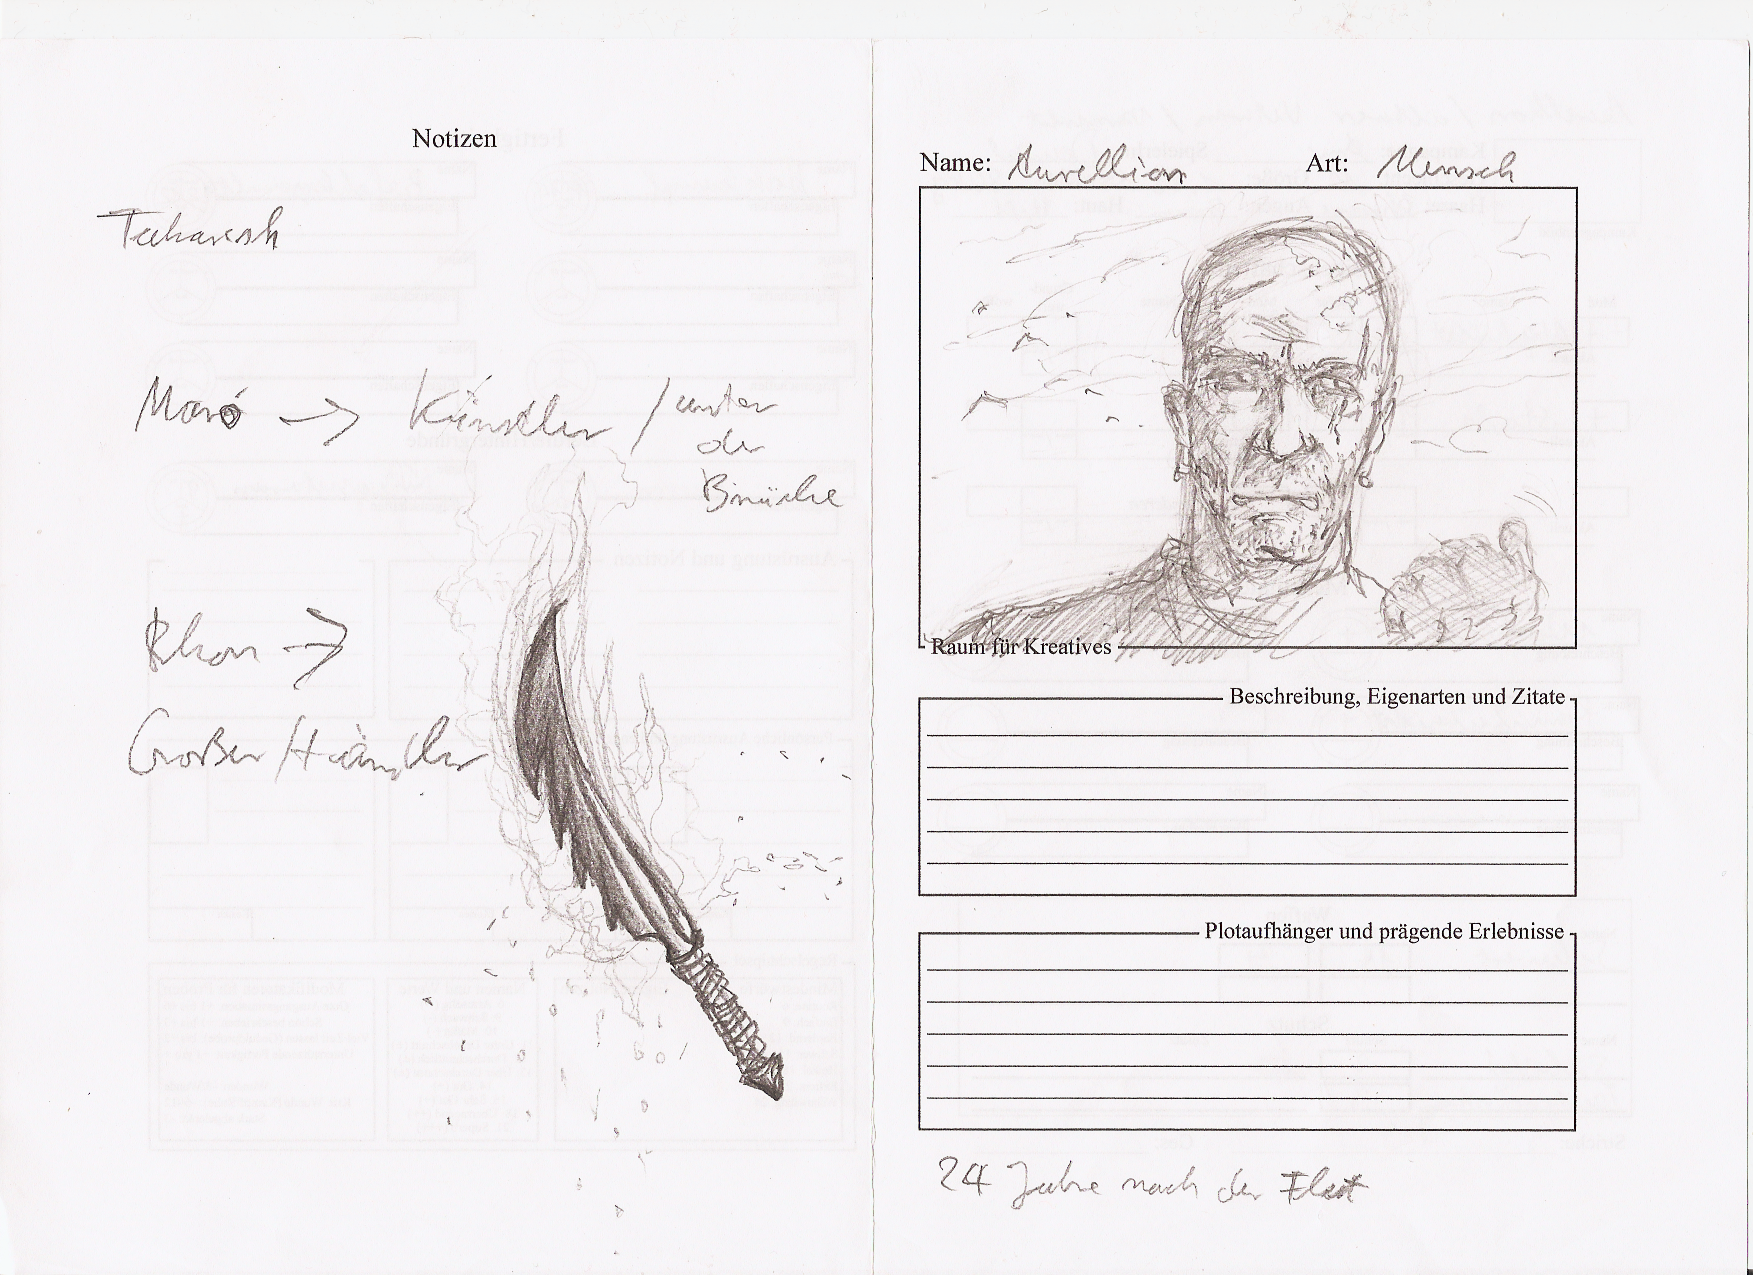 Notizen
Maró → Künstler / unter
der
Brücke
Rhon →
Großer Händler
Name: Aurellion Art: Mensch
Raum für Kreatives
Beschreibung, Eigenarten und Zitate
Plotaufhänger und prägende Erlebnisse
24 Jahre nach der Flut